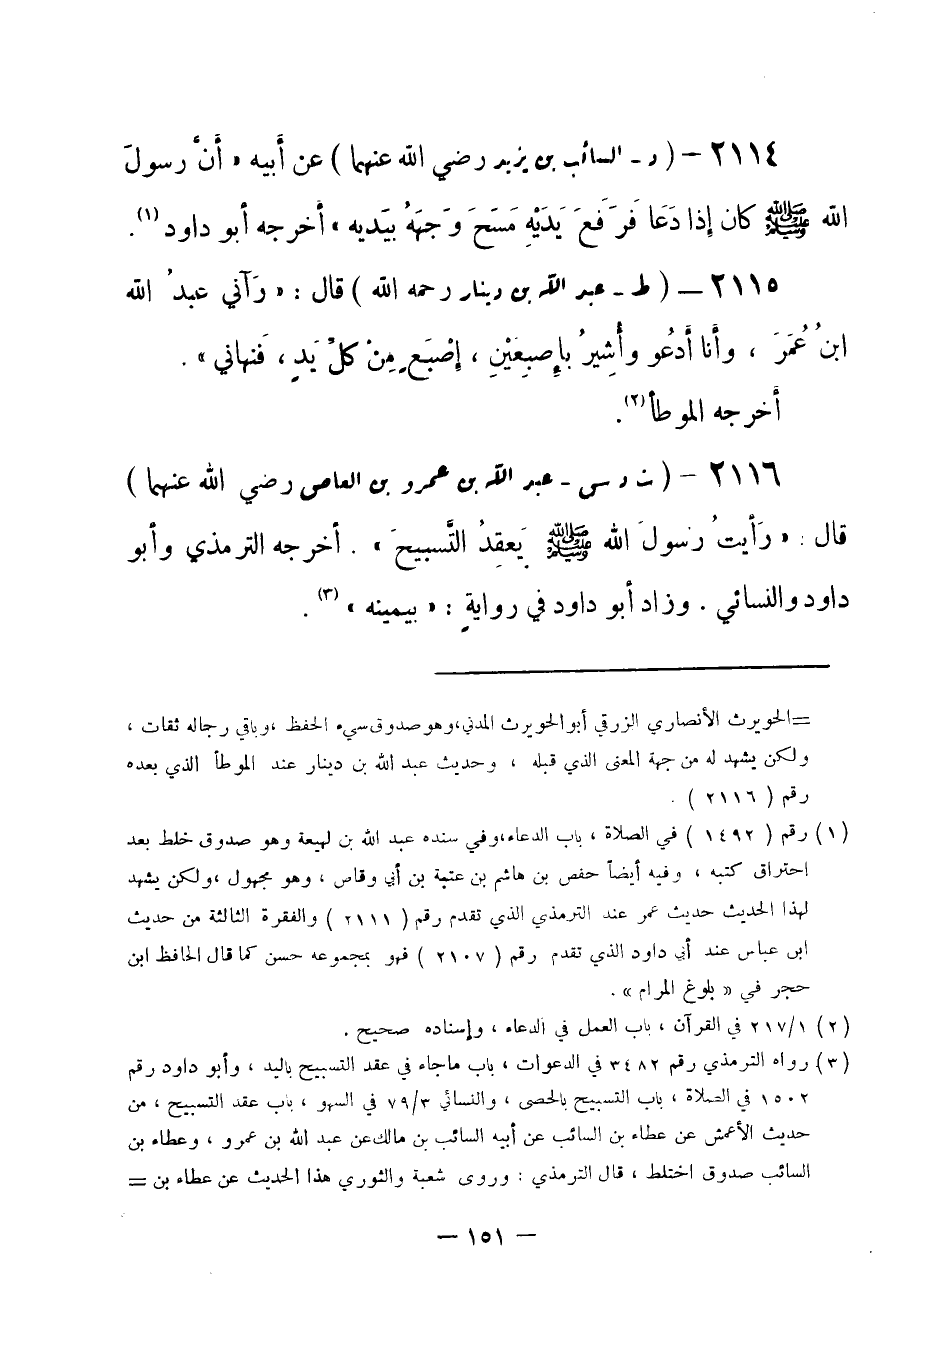 ٢١١٤ – ( د - السائب بن يزيد رضي الله عنهما ) عن أبيه « أنَّ رسولَ
الله ﷺ كان إذا دَعَا فَرَفَعَ يَدَيْهِ مَسَحَ وَجهَهُ بيَديه » أخرجه أبو داود (١).
٢١١٥ – ( ط - عبد الله بن دينار رحمه الله ) قال : « رَآني عبدُ الله
ابنُ عُمَرَ ، وأنا أدْعُو وأُشِيرُ بإصبعَيْنِ ، إصْبَعٍ مِنْ كلِّ يَدٍ ، فَنهاني » .
أخرجه الموطأ (٢).
٢١١٦ – ( ت د س - عبد الله بن عمرو بن العاص رضي الله عنهما )
قال : « رَأيتُ رسُولَ الله ﷺ يَعقِدُ التَّسبيحَ » . أخرجه الترمذي وأبو
داود والنسائي . وزاد أبو داود في روايةٍ : « بيمينه » (٣) .
=الحويرث الأنصاري الزرقي أبو الحويرث المدني،وهو صدوق سيء الحفظ ،وباقي رجاله ثقات ،
ولكن يشهد له من جهة المعنى الذي قبله ، وحديث عبد الله بن دينار عند الموطأ الذي بعده
رقم ( ٢١١٦ ) .
(١) رقم ( ١٤٩٢ ) في الصلاة ، باب الدعاء،وفي سنده عبد الله بن لهيعة وهو صدوق خلط بعد
احتراق كتبه ، وفيه أيضاً حفص بن هاشم بن عتبة بن أبي وقاص ، وهو مجهول ،ولكن يشهد
لهذا الحديث حديث عمر عند الترمذي الذي تقدم رقم ( ٢١١١ ) والفقرة الثالثة من حديث
ابن عباس عند أبي داود الذي تقدم رقم ( ٢١٠٧ ) فهو بمجموعه حسن كما قال الحافظ ابن
حجر في « بلوغ المرام » .
(٢) ٢١٧/١ في القرآن ، باب العمل في الدعاء ، وإسناده صحيح .
(٣) رواه الترمذي رقم ٣٤٨٢ في الدعوات ، باب ماجاء في عقد التسبيح باليد ، وأبو داود رقم
١٥٠٢ في الصلاة ، باب التسبيح بالحصى ، والنسائي ٧٩/٣ في السهو ، باب عقد التسبيح ، من
حديث الأعمش عن عطاء بن السائب عن أبيه السائب بن مالك عن عبد الله بن عمرو ، وعطاء بن
السائب صدوق اختلط ، قال الترمذي : وروى شعبة والثوري هذا الحديث عن عطاء بن =
– ١٥١ –